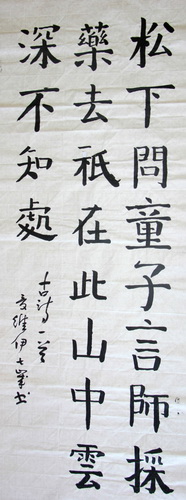 松下問童子言師採
藥去祇在此山中雲
深不知處
古詩一首